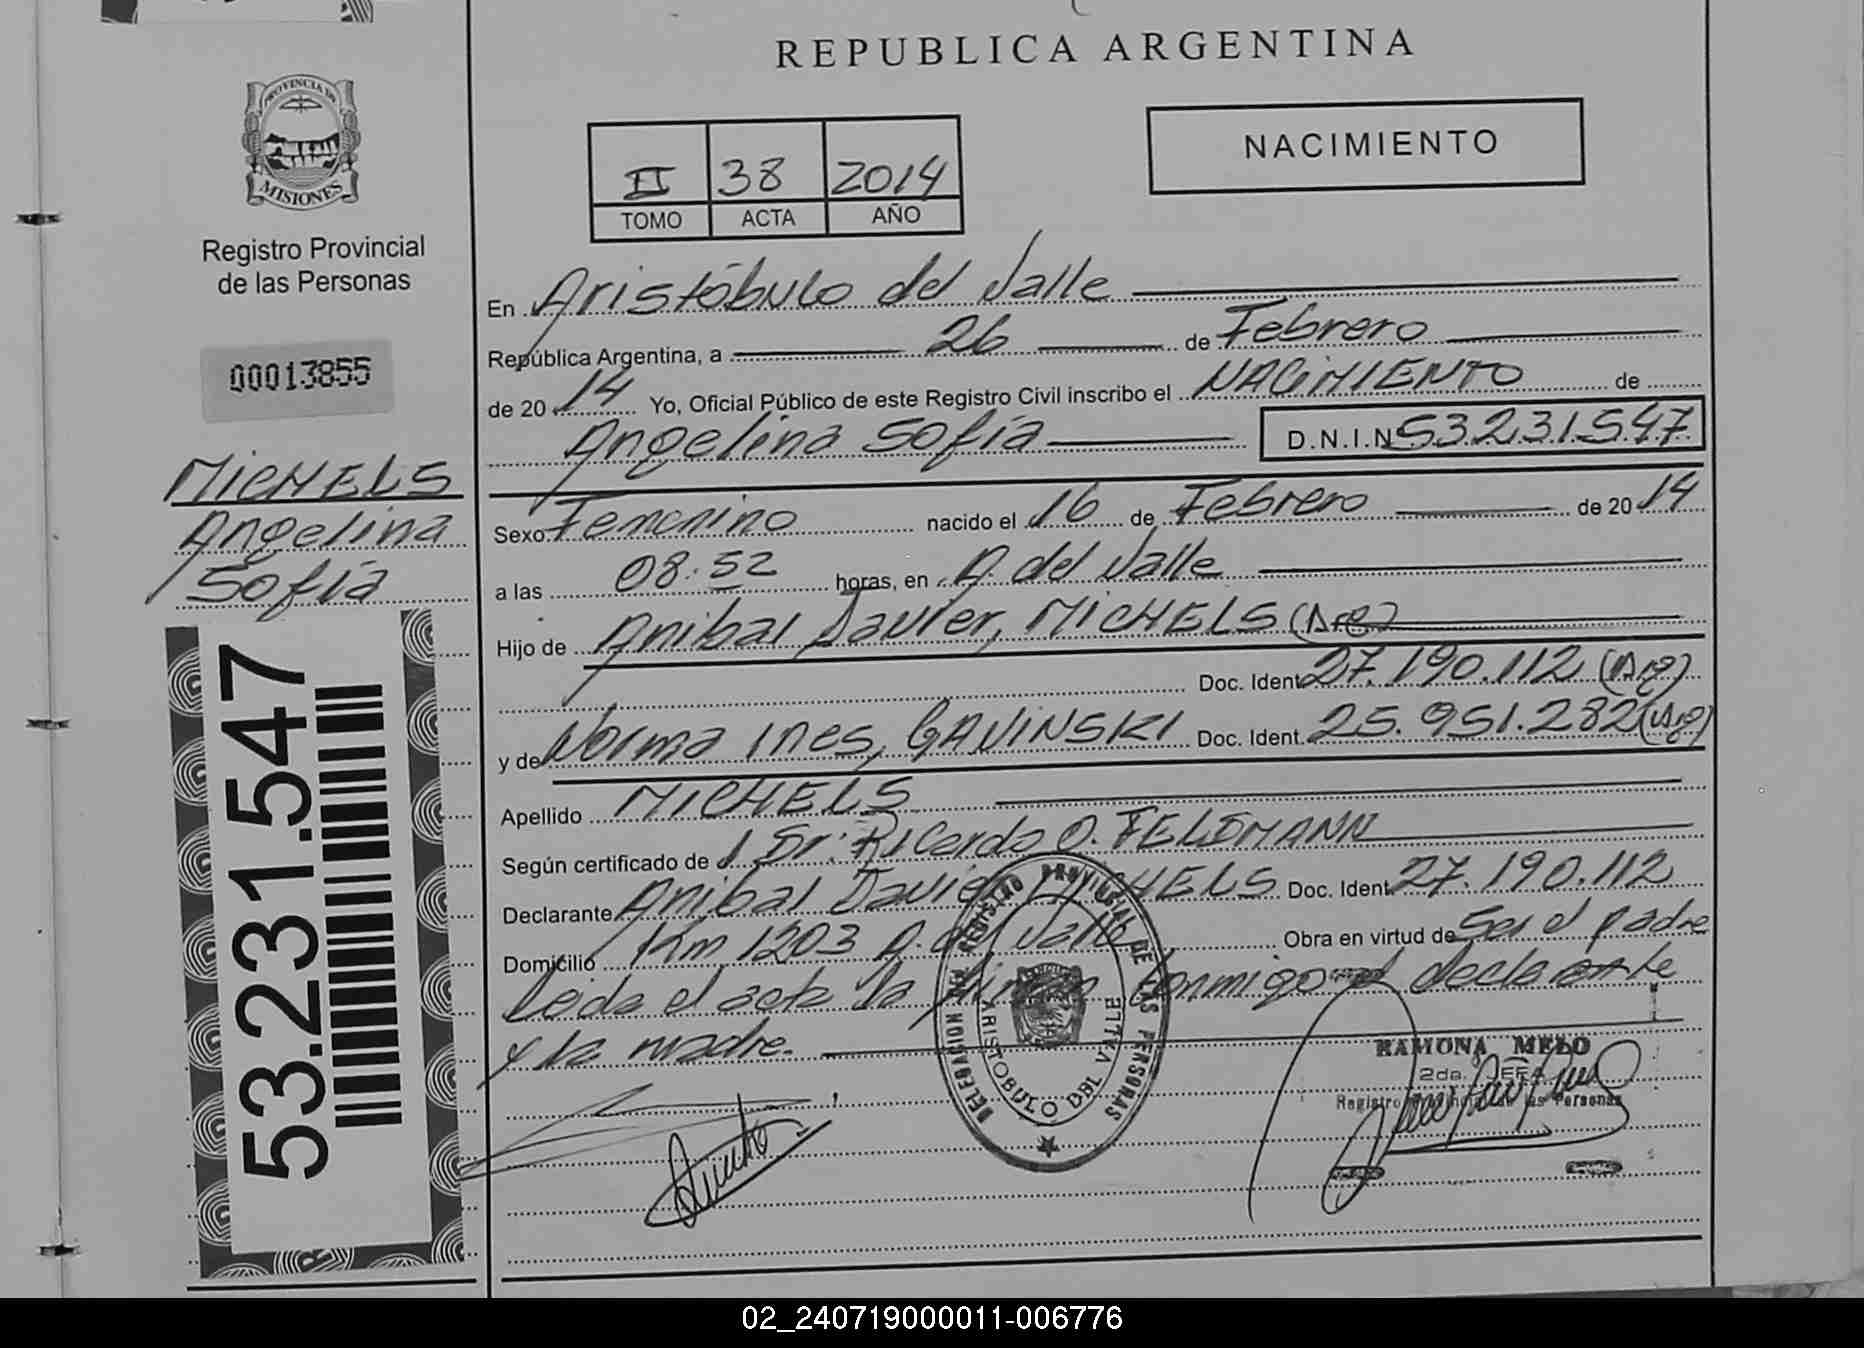 REPUBLICA ARGENTINA
PROVINCIA DE
MISIONES
Registro Provincial
de las Personas
00013855
MICHELS
Angelina
Sofía
53.231.547
II 38 2014
TOMO ACTA AÑO
NACIMIENTO
En Aristóbulo del Valle
República Argentina, a 26 de Febrero
de 20 14 Yo, Oficial Público de este Registro Civil inscribo el NACIMIENTO de
Angelina Sofía D.N.I.N 53.231.547
Sexo Femenino nacido el 16 de Febrero de 20 14
a las 08:52 horas, en A. del Valle
Hijo de Anibal Javier, MICHELS (Arg)
Doc. Ident. 27.190.112 (Arg)
y de Norma Ines, GAVINSKI Doc. Ident. 25.951.282 (Arg)
Apellido MICHELS
Según certificado de Dr. Ricardo O. FELDMANN
Declarante Anibal Javier MICHELS Doc. Ident. 27.190.112
Domicilio Km 1203 A. del Valle Obra en virtud de Ser el padre
Leida el acta la firman conmigo el declarante
y la madre.
DELEGACION DE REGISTRO PROVINCIAL DE LAS PERSONAS
ARISTOBULO DEL VALLE
RAMONA MELO
2da. JEFA
Registro Provincial de las Personas
02_240719000011-006776